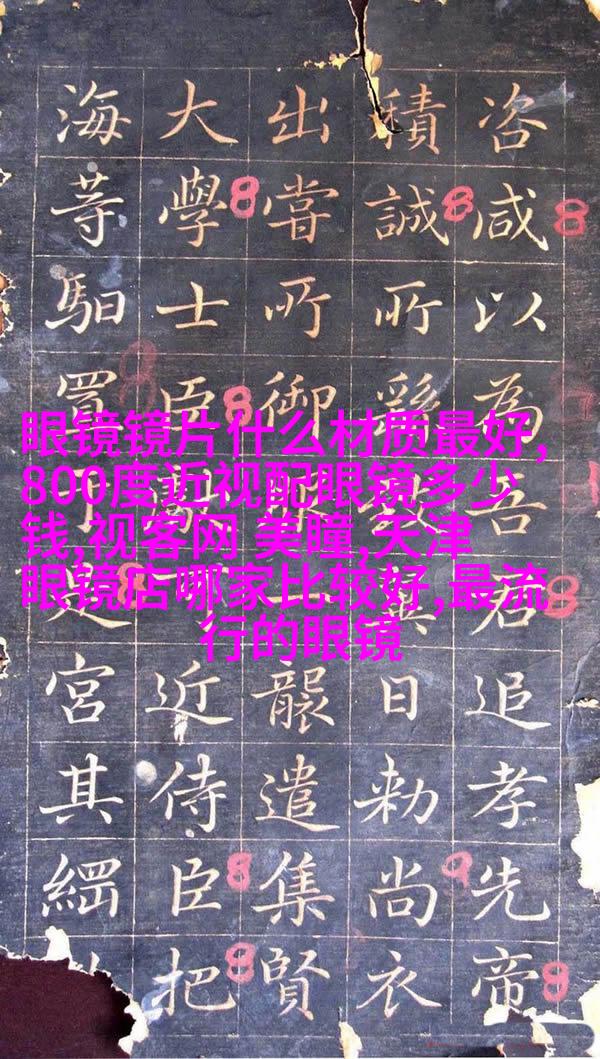 咨咸以為吾君追孝先帝
積誠所日勅尚衣
出嘗所御襲遣集賢
大學士臣近侍臣把
海等馹置宮其
眼镜镜片什么材质最好,
800度近视配眼镜多少
钱,视客网 美瞳,天津
眼镜店哪家比较好,最流
行的眼镜